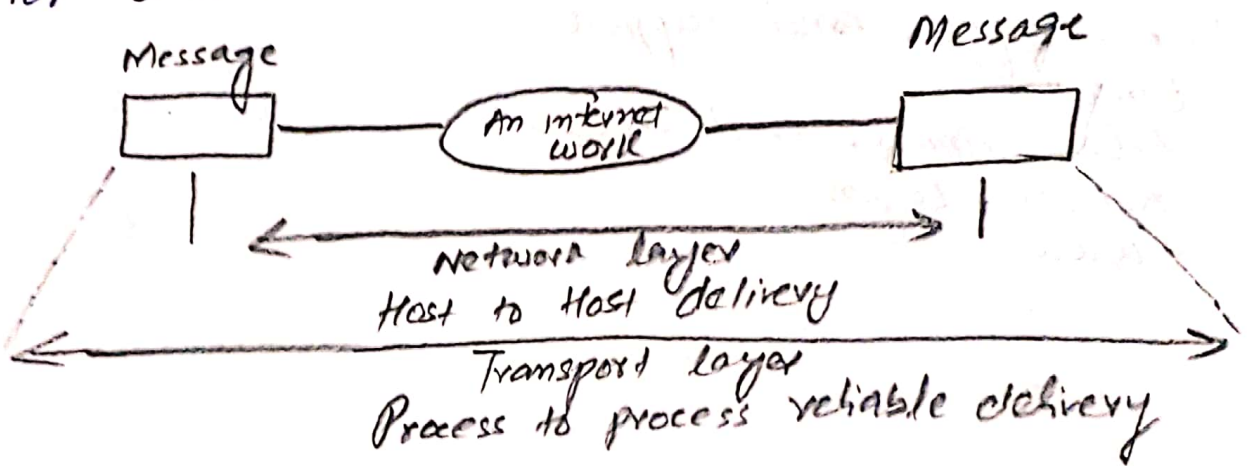 Message
Message
An internet
work
Network layer
Host to Host delivery
Transport layer
Process to process reliable delivery